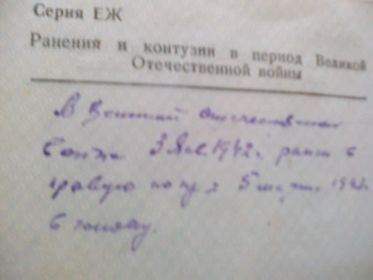 Серия ЕЖ
Ранения и контузии в период Великой
Отечественной войны
В Великой отечественной
3 Янв. 1942 г. ранен в
правую 5 марта
в голову.